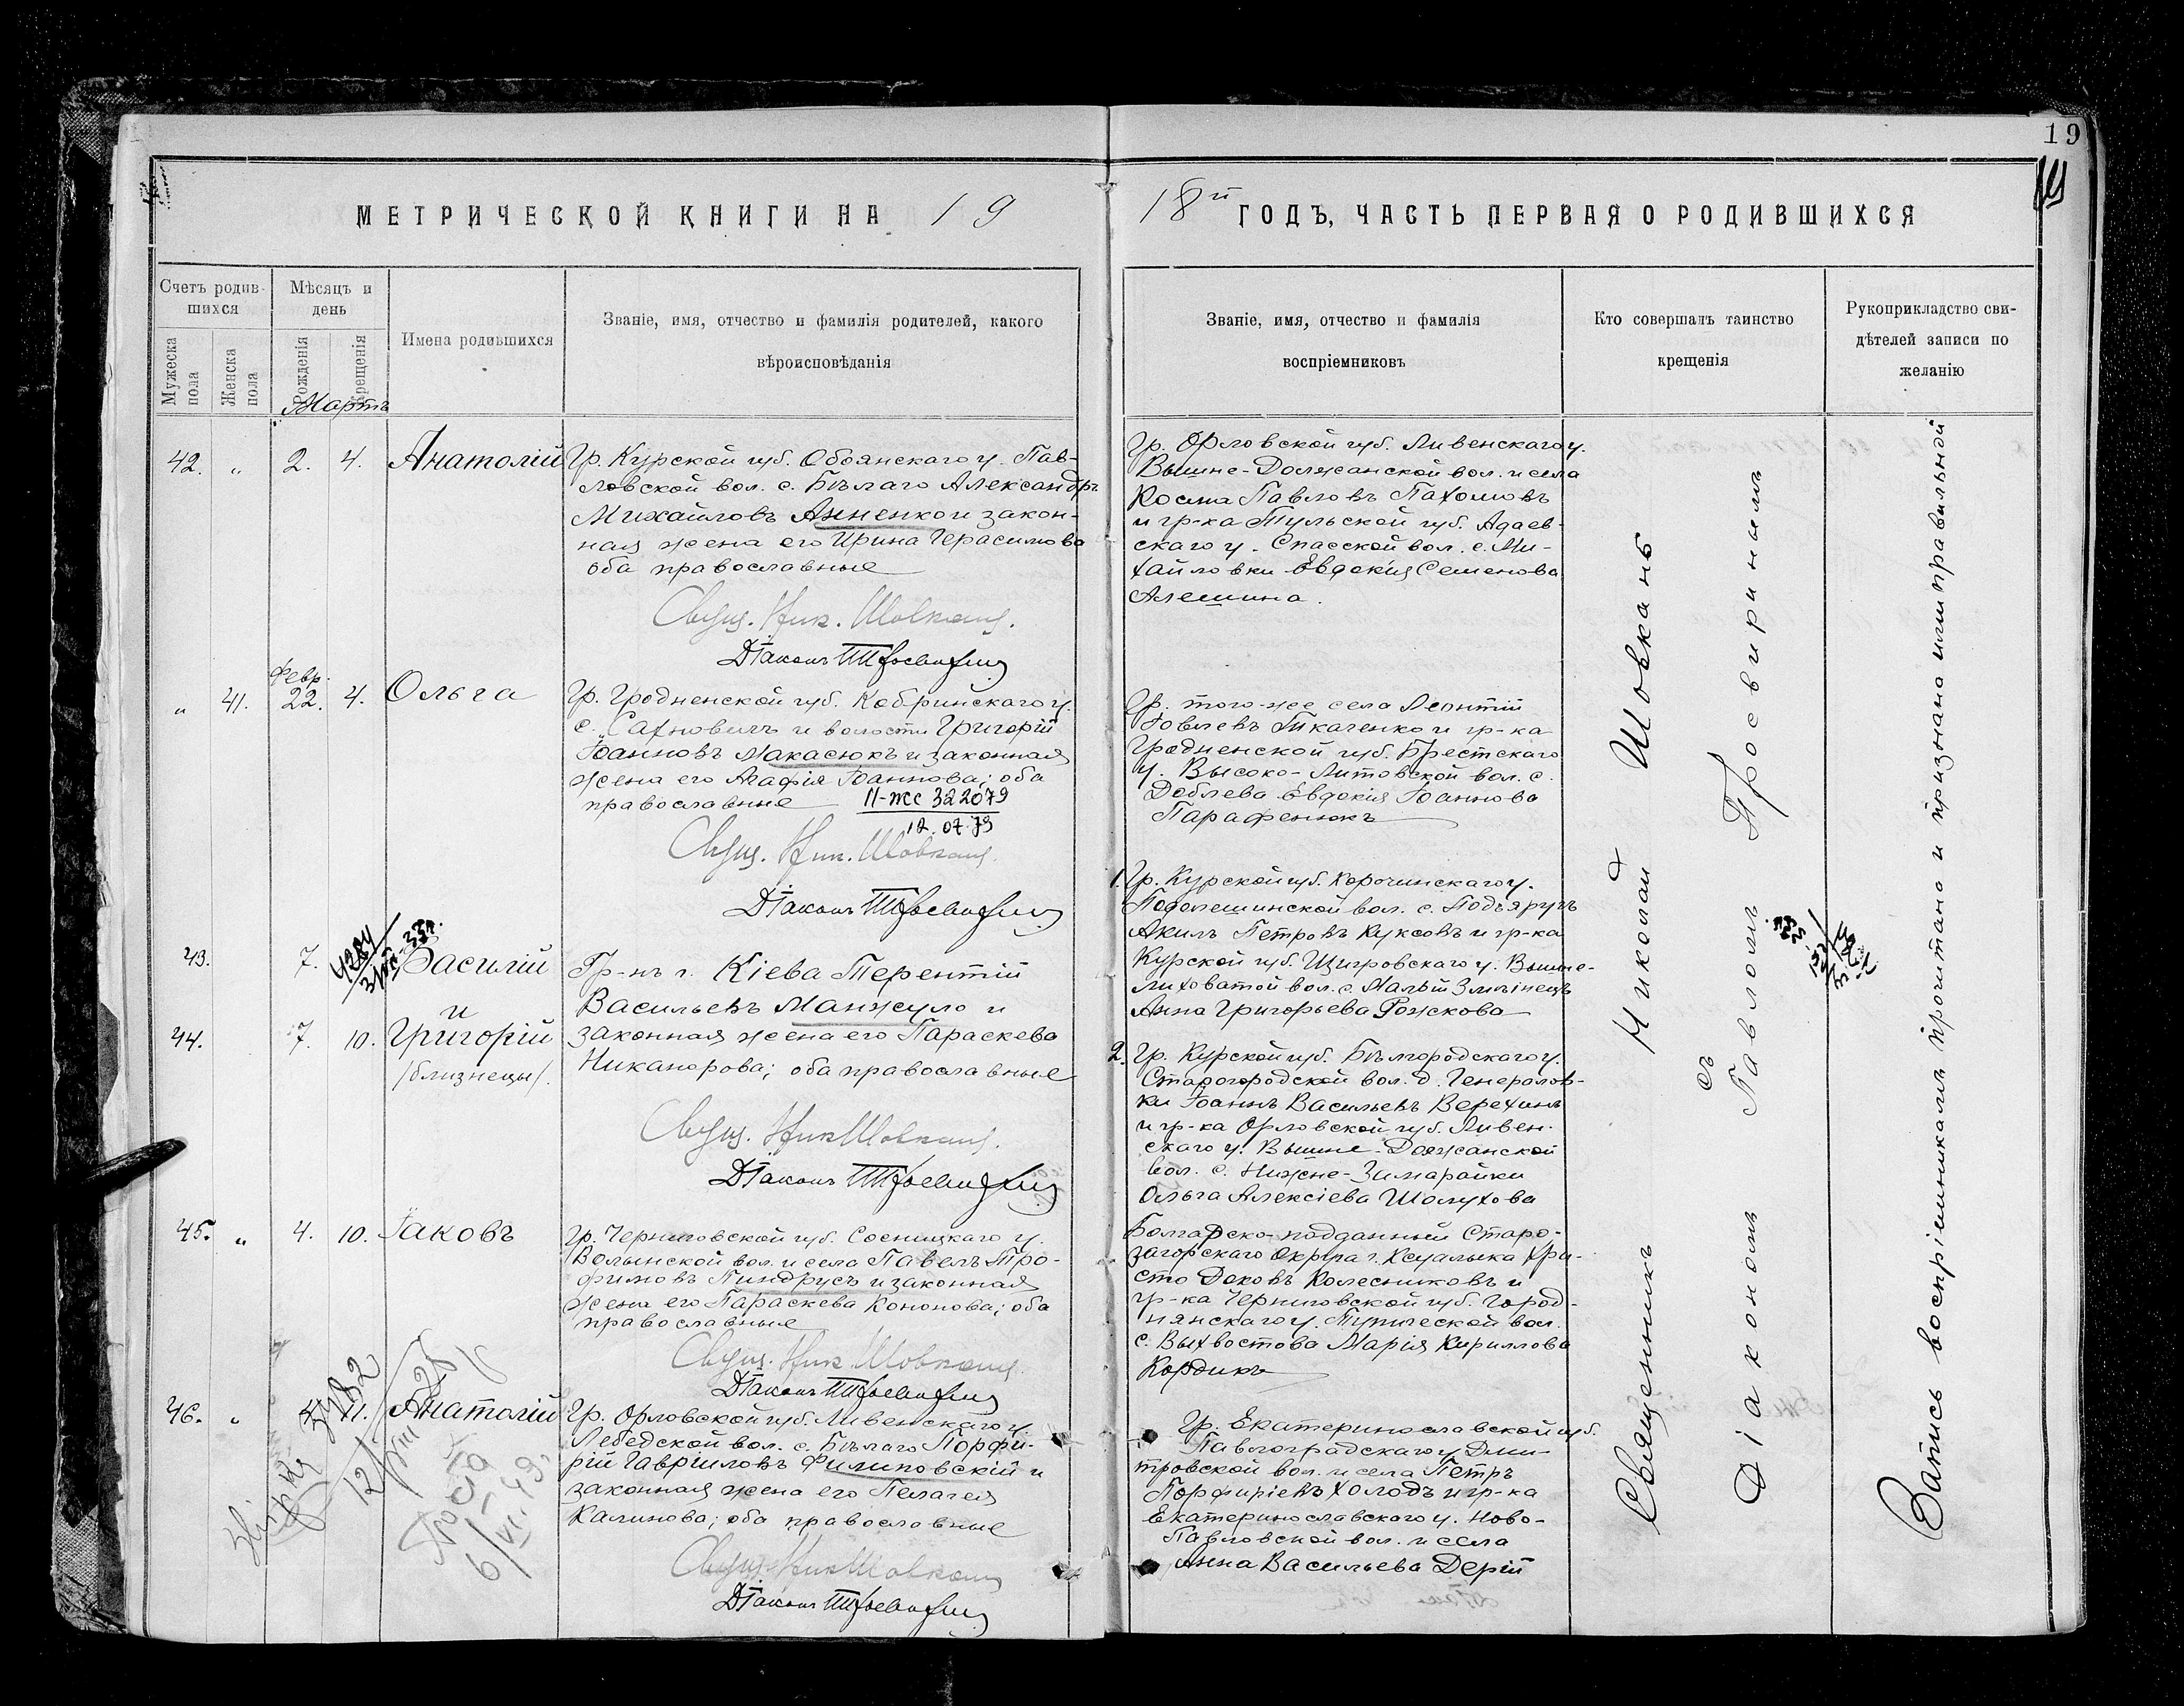 19
19
МЕТРИЧЕСКОЙ КНИГИ НА 19
18й ГОДЪ, ЧАСТЬ ПЕРВАЯ О РОДИВШИХСЯ
Счетъ родив-
шихся
Мужеска
пола
Женска
пола
Мѣсяцъ и
день
Рожденія
Крещенія
Имена родившихся
Званіе, имя, отчество и фамилія родителей, какого
вѣроисповѣданія
Званіе, имя, отчество и фамилія
воспріемниковъ
Кто совершалъ таинство
крещенія
Рукоприкладство сви-
дѣтелей записи по
желанію
Мартъ
42. " 2. 4. Анатолій
Гр. Курской губ. Обоянскаго у. Пав-
ловской вол. с. Бѣлаго Александръ
Михайловъ Анненко и закон-
ная жена его Ирина Герасимова
оба православные
Свящ. Ник. Шовкань.
Діаконъ
Гр. Орловской губ. Ливенскаго у.
Вышне-Должанской вол. и села
Косма Павловъ Пахомовъ
и гр-ка Тульской губ. Адаев-
скаго у. Спасской вол. с. Ми-
хайловки Евдокія Семенова
Алешина.
Февр.
" 41. 22. 4. Ольга
Гр. Гродненской губ. Кобринскаго у.
с. Сахновичъ и волости Григорій
Іоанновъ Макасюкъ и законная
жена его Агафія Іоаннова; оба
православные
II-ЖС 322079
12.07.79
Свящ. Ник. Шовкань.
Діаконъ
Гр. того-же села Леонтій
Іовлевъ Ткаченко и гр-ка
Гродненской губ. Брестскаго
у. Высоко-Литовской вол. с.
Доблева Евдокія Іоаннова
Парафенюкъ
43. 7. Василій
и
44. 7. 10. Григорій
/близнецы/.
Гр-нъ г. Кіева Терентій
Васильевъ Манжуло и
законная жена его Параскева
Никанорова; оба православные
Свящ. Ник Шовкань.
Діаконъ
1. Гр. Курской губ. Корочинскаго у.
вол. с. Подъяругъ
Акилъ Петровъ Куксовъ и гр-ка
Курской губ. Щигровскаго у. Вышне-
вол. с. Малый Змѣинецъ
Анна Григорьева Рожкова
2. Гр. Курской губ. Бѣлгородскаго у.
Старогородской вол. д. Генералов-
ки Іоаннъ Васильевъ Верехинъ
и гр-ка Орловской губ. Ливен-
скаго у. Вышне-Должанской
вол. с. Нижне-Замарайки
Ольга Алексіева Шолухова
45. " 4. 10. Іаковъ
Гр. Черниговской губ. Сосницкаго у.
Волынской вол. и села Павелъ Тро-
фимовъ Пиндрусъ и законная
жена его Параскева Кононова; оба
православные
Свящ. Ник Шовкань.
Діаконъ
Болгарско-подданный Старо-
загорскаго округа г. Хри-
сто Доковъ Колесниковъ и
гр-ка Черниговской губ. Город-
нянскаго у. Тупической вол.
с. Выхвостова Марія Кириллова
Кордикъ
46. " 11. Анатолій
3482
Гр. Орловской губ. Ливенскаго у.
Лебедской вол. с. Бѣлаго Порфи-
рій Гавриловъ Филиповскій и
законная жена его Пелагея
Калинова; оба православные
Свящ. Ник Шовкань
Діаконъ
Гр. Екатеринославской губ.
Павлоградскаго у. Дми-
тровской вол. и села Петръ
Порфиріевъ Холодъ и гр-ка
Екатеринославскаго у. Ново-
Павловской вол. и села
Анна Васильева Дерій
Священникъ Николай Шовкань
съ
Діакономъ Павломъ Просвиринымъ
Запись воспріемникамъ прочитана и признана ими правильной